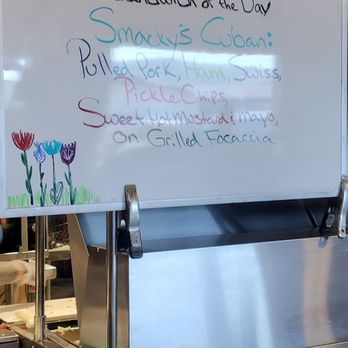 Sandwich of the Day
Smacky's Cuban:
Pulled Pork, Ham, Swiss,
Pickle Chips,
Sweet Hot Mustard & Mayo,
on Grilled Focaccia